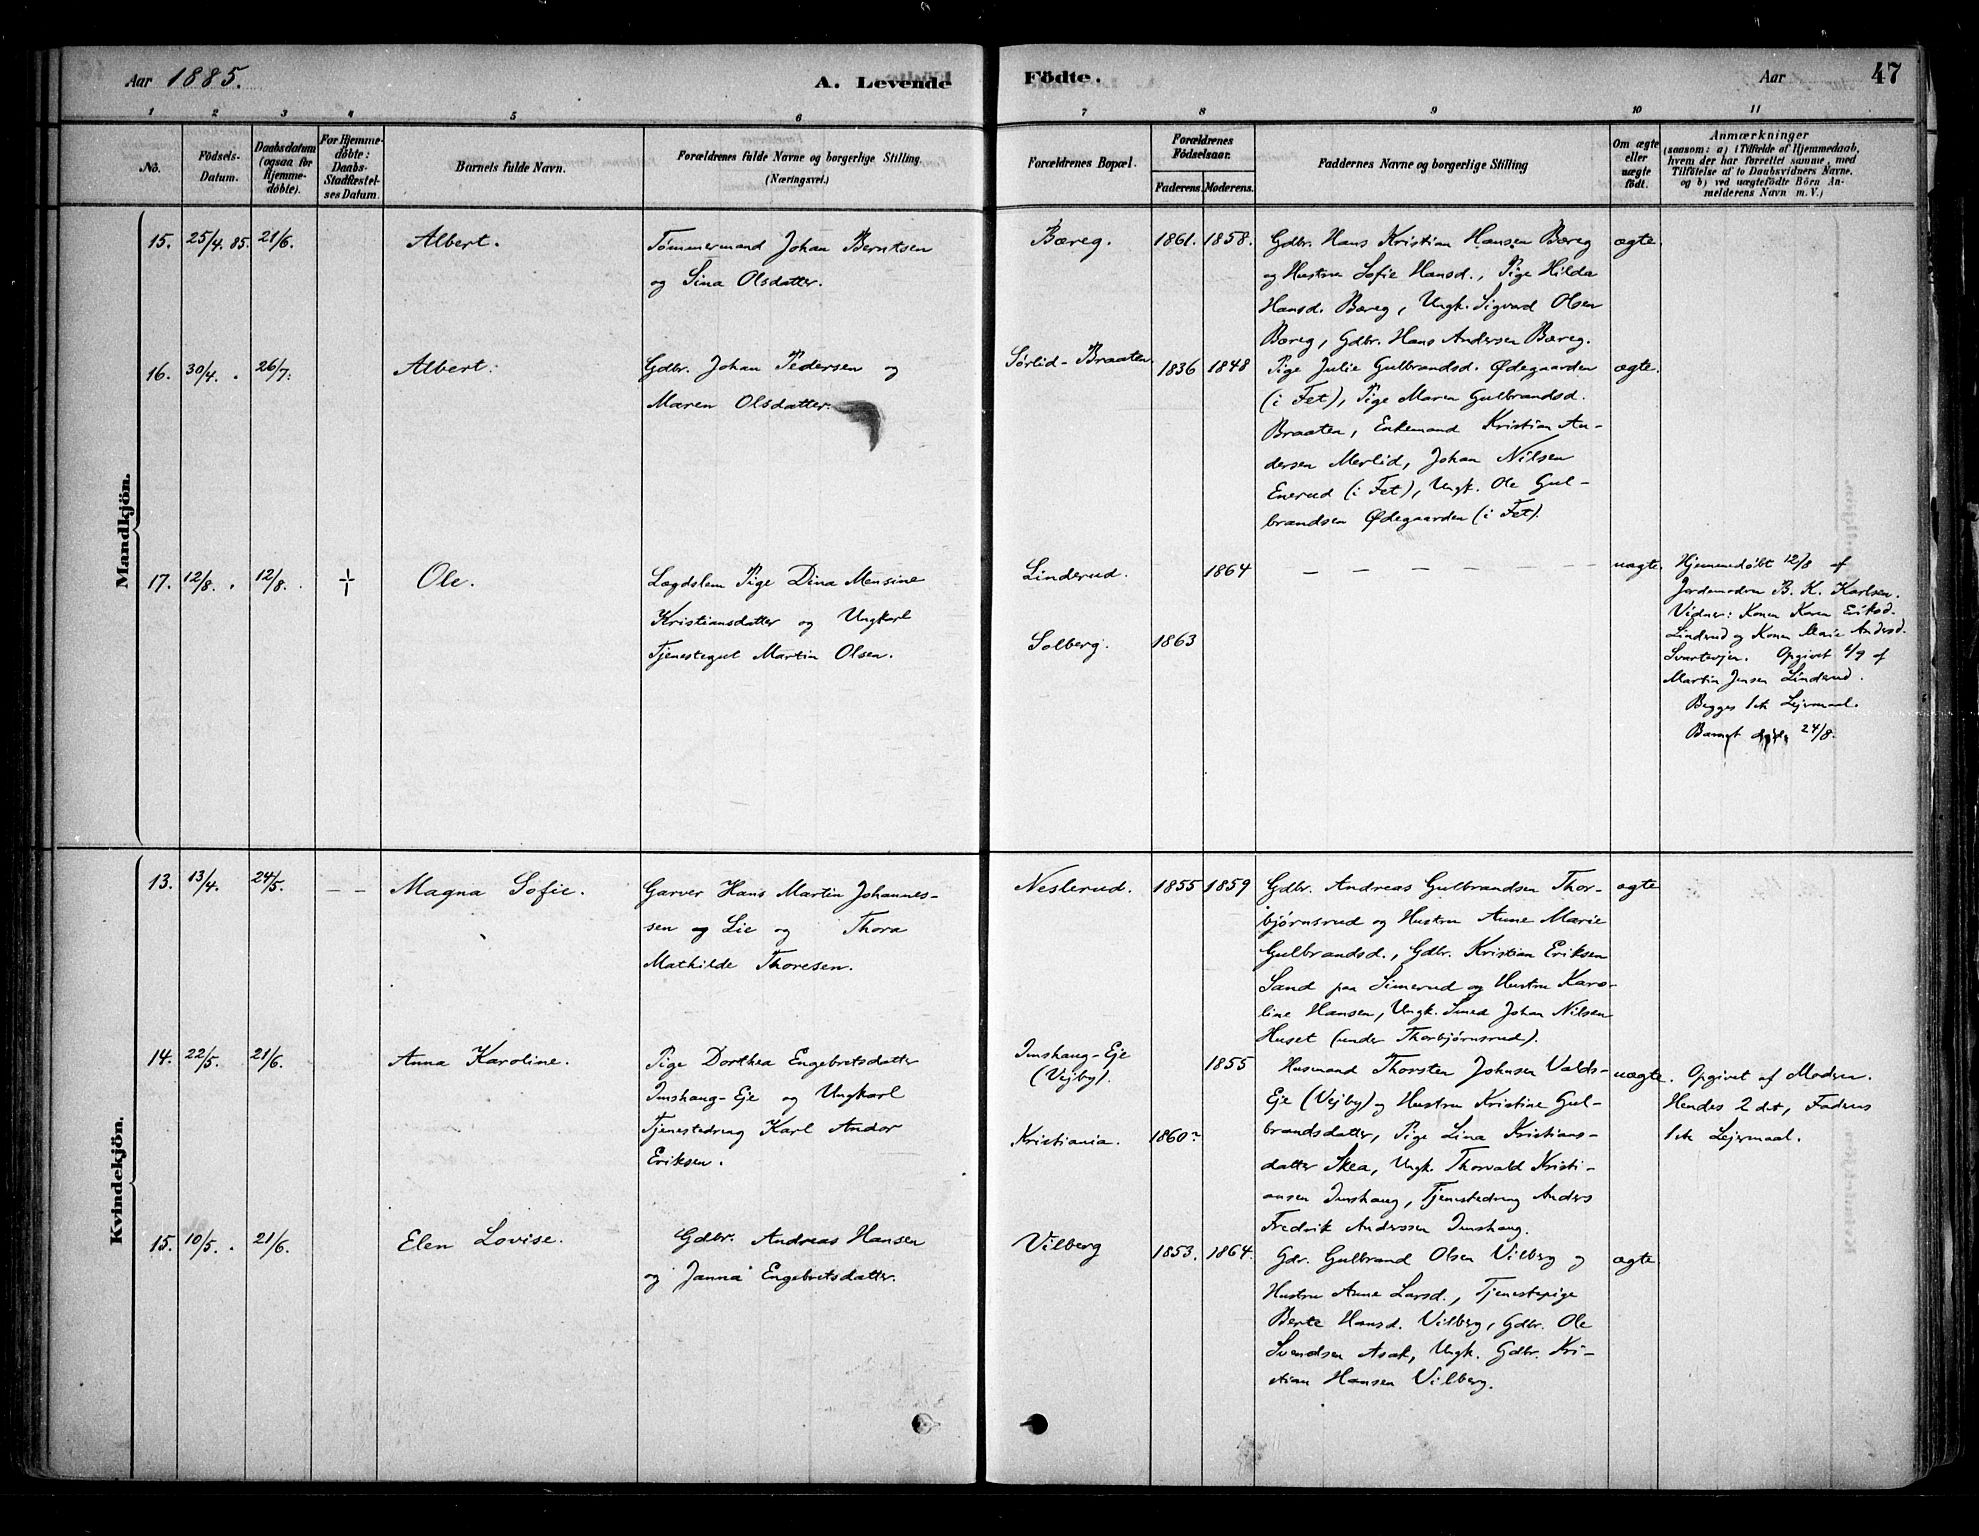 Aar 1885.
A. Levende
Födte.
Aar
47
1 2 3 4 5 6 7 8 9 10 11
No.
Födsels-
Datum.
Daabsdatum
(ogsaa for
Hjemme-
döbte).
For Hjemme-
döbte:
Daabs-
Stadfæstel-
ses Datum.
Barnets fulde Navn.
Forældrenes fulde Navne og borgerlige Stilling.
(Næringsvei.)
Forældrenes Bopæl.
Forældrenes
Födselsaar.
Faderens. Moderens.
Faddernes Navne og borgerlige Stilling
Om ægte
eller
uægte
födt.
Anmærkninger
(saasom: a) i Tilfælde af Hjemmedaab,
hvem der har forrettet samme, med
Tilföielse af to Daabsvidners Navne,
og b) ved uægtefödte Börn An-
melderens Navn m. V.)
Mandkjön.
15. 25/4. 85. 21/6. Albert.
Tømmermand Johan Berntsen
og Sina Olsdatter.
Bæreg. 1861. 1858.
Gdbr. Hans Kristian Hansen Bæreg
og Hustru Sofie Hansd., Pige Hilda
Hansd. Bæreg, Ungk. Sigvard Olsen
Bæreg, Gdbr. Hans Andersen Bæreg.
ægte.
16. 30/4. 26/7. Albert.
Gdbr. Johan Pedersen og
Maren Olsdatter.
Sørlid-Braaten. 1836 1848
Pige Julie Gulbrandsd. Ødegaarden
(i Fet), Pige Maren Gulbrandsd.
Braaten, Enkemand Kristian An-
dersen Merlid, Johan Nilsen
Enerud (i Fet), Ungk. Ole Gul-
brandsen Ødegaarden (i Fet).
ægte.
17. 12/8. 12/8. † Ole.
Lægdslem Pige Dina Mensine
Kristiansdatter og Ungkarl
Tjenestegut Martin Olsen.
Linderud. 1864
Solberg. 1863
— — — — — —
uægte.
Hjemmedøbt 12/8 af
Jordemoder B. K. Karlsen.
Vidner: Konen Karen Eriksd.
Linderud og Konen Marie Andersd.
Opgivet /9 af
Martin Jensen Linderud.
Begges 1ste Lejermaal.
Barnet døde 24/8.
Kvindekjön.
13. 13/4. 24/5. — — Magna Sofie.
Garver Hans Martin Johannes-
sen og Lie og Thora
Mathilde Thoresen.
Neslerud. 1855 1859
Gdbr. Andreas Gulbrandsen Thor-
bjørnsrud og Hustru Anne Marie
Gulbrandsd., Gdbr. Kristian Eriksen
Sand paa Simerud og Hustru Karo-
line Hansen, Ungk. Smed Johan Nilsen
Huset (under Thorbjørnsrud).
ægte
14. 22/5. 21/6. Anna Karoline.
Pige Dorthea Engebretsdatter
Imshaug-Eje og Ungkarl
Tjenestedreng Karl Andor
Eriksen.
Imshaug-Eje
(Vejby). 1855
Kristiania. 1860?
Husmand Thorsten Johnsen Valds-
Eje (Vejby) og Hustru Kristine Gul-
brandsdatter, Pige Lina Kristians-
datter Skea, Ungk. Thorvald Kristi-
ansen Imshaug, Tjenestedreng Anders
Fredrik Anderssen Imshaug.
uægte.
Opgivet af Moderen.
Hendes 2det, Faderens
1ste Lejermaal.
15. 10/5. 21/6. Elen Lovise.
Gdbr. Andreas Hansen
og Janna Engebretsdatter.
Vilberg 1853. 1864.
Gdr. Gulbrand Olsen Vilberg og
Hustru Anne Larsd., Tjenestepige
Berte Hansd. Vilberg, Gdbr. Ole
Svendsen Asak, Ungk. Gdbr. Kri-
stian Hansen Vilberg.
ægte.